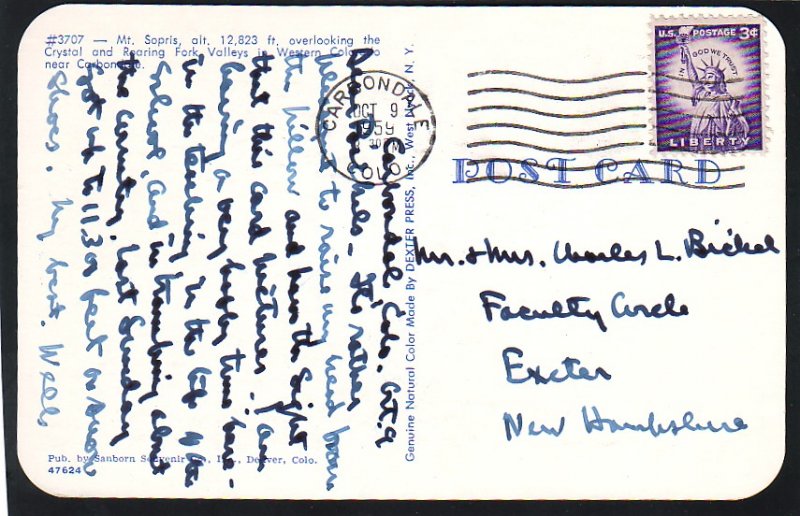 #3707 — Mt. Sopris, alt. 12,823 ft. overlooking the
Crystal and Roaring Fork Valleys in Western Colorado
near Carbondale.
Carbondale, Colo. Oct. 9
Dear Bickels - It's rather
pleasant to raise my head from
the pillow and have the sight
that this card pictures. I am
having a very busy time here -
in the teaching, in the life of the
school, and in tramping about
the country. Last Sunday
got up to 11,300 feet on snow
shoes. My best. Wells
Pub. by Sanborn Souvenir Co., Inc., Denver, Colo.
47624
Genuine Natural Color Made By DEXTER PRESS, Inc., West Nyack, N. Y.
CARBONDALE
OCT 9
1959
COLO.
U.S. POSTAGE 3¢
IN GOD WE TRUST
LIBERTY
POST CARD
Mr. & Mrs. Charles L. Bickel
Faculty Circle
Exeter
New Hampshire